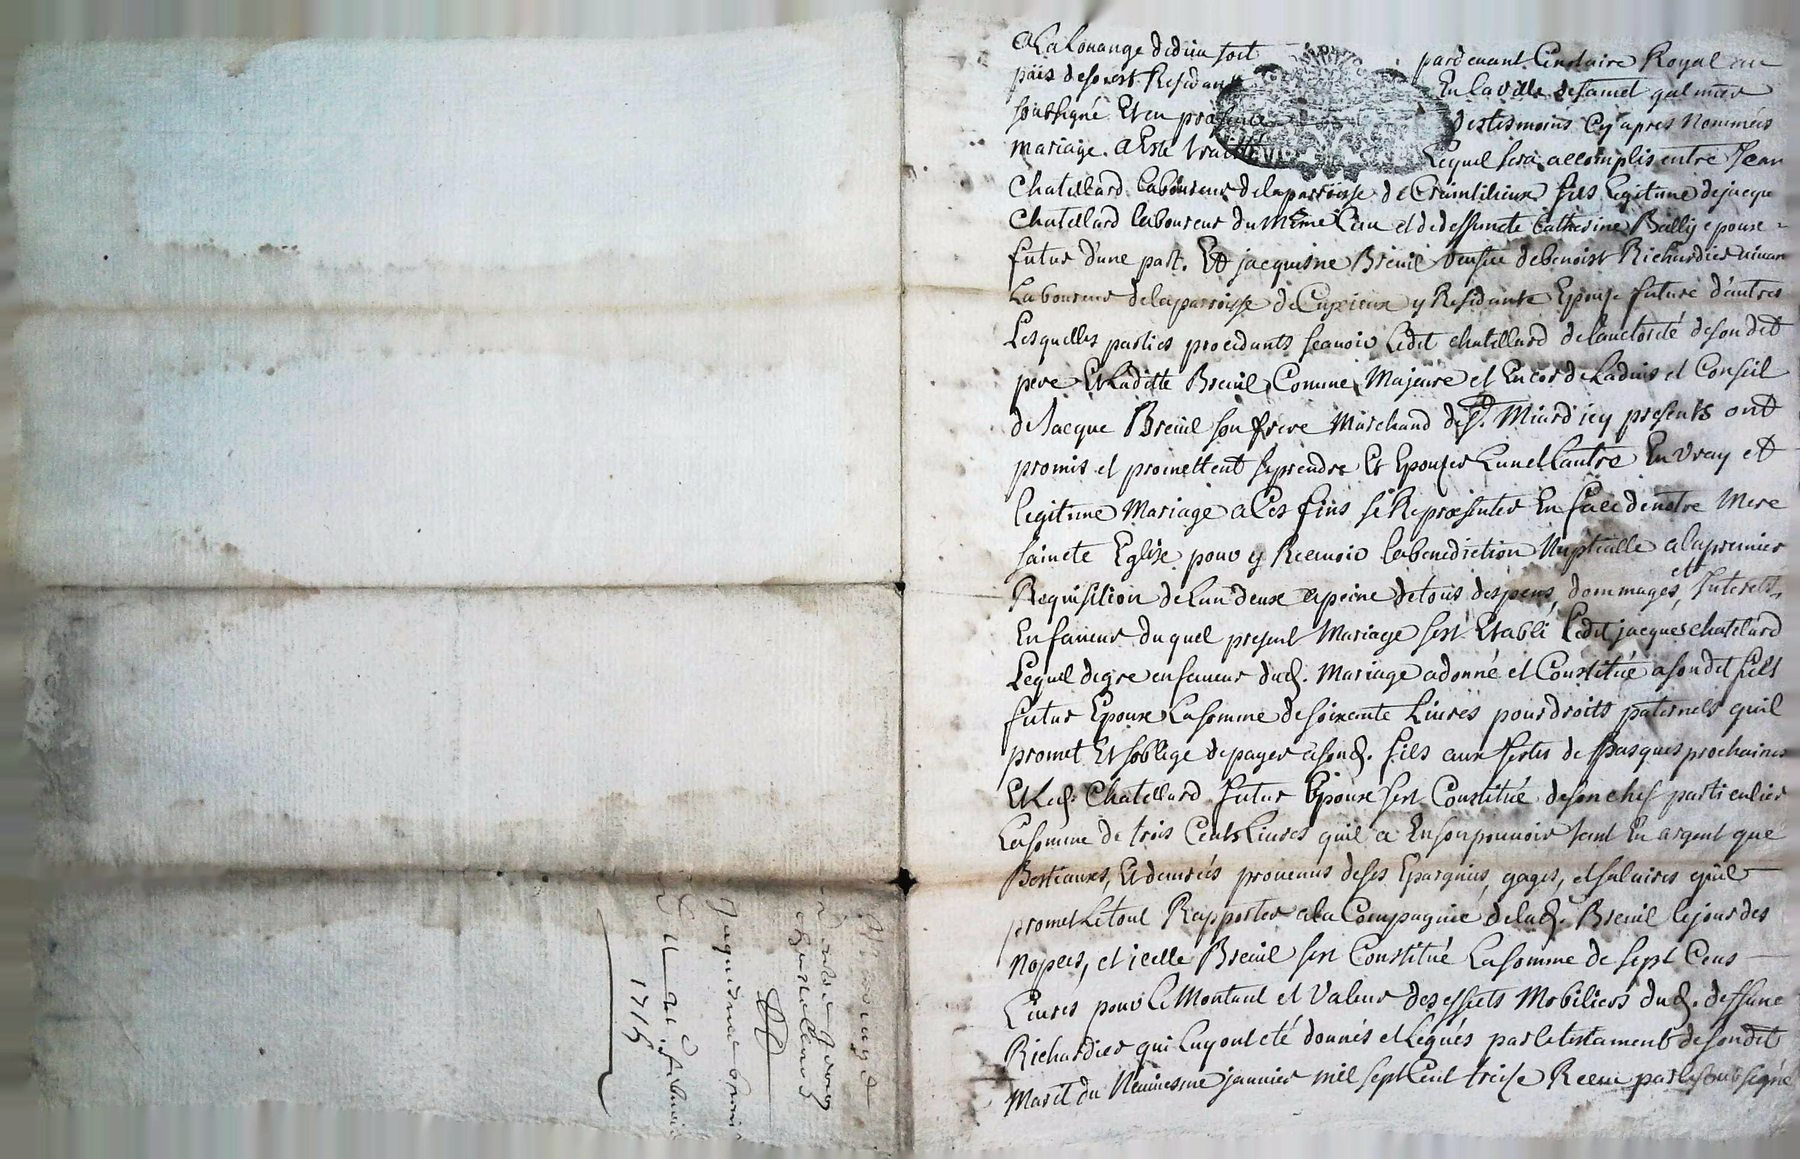 A La Louange de dieu soit pardevant Le notaire Royal au
païs de forest Residant En la ville de saint galmier
soubsigné Et en presence des tesmoins Cy apres Nommés
mariage a Esté traitté Lequel sera accomplis entre Jean
Chatellard laboureur de la parroisse de Craintilieux fils Legitime de jacque
Chatellard laboureur du Même Lieu et de deffuncte Catherine Bally epoux
futur d'une part. Et jacquême Breuil veufue de benoist Richardier vivan
Laboureur de la parroisse de Cuzieux y Residante Epouse future d'autres
Lesquelles parties procedants scauoir Ledit chatellard de l'auctorité de son dit
pere Et Laditte Breuil Comme Majeure et Encor de Laduis et Conseil
de Jacque Breuil son frere Marchand de St. Miard icy presents ont
promis et promettent se prendre Et Epouser L'un et L'autre En vray et
legitime Mariage a Ces fins se Representer En face de notre Mere
saincte Eglise pour y Receuoir la benediction Nuptialle a la premier
Requisition de L'un deux a peine de tous despens, dommages, et Interests,
En faueur du quel present Mariage s'est Etabli Ledit jacques chatelard
Lequel de gre en faueur dud. Mariage a donné et Constitué a son dit fils
futur Epoux La somme de soixente Liures pour droits paternels qu'il
promet Et s'oblige de payer a sond. fils aux festes de Pasques prochaines
Et Led. Chatellard futur Epoux s'est Constitué de son chef particulier
La somme de trois Cents Liures quil a En son pouuoir tant En argent que
Bestiaux, Et denrées prouenus de ses Epargnes, gages, et salaires qu'il
promet Le tout Rapporter a la Compagnie de lad. Breuil le jour des
nopces, et icelle Breuil s'est Constitué La somme de sept Cens
Liures pour Le Montant et Valeur des effets Mobiliers dud. deffunt
Richardier qui Luy ont eté donnés et Legués par le testament de son dit
Marit du Neuuiesme januier mil sept Cent treise Receu par Le soubsigné
Mariage
chatellard
Jaquême breuil
1715